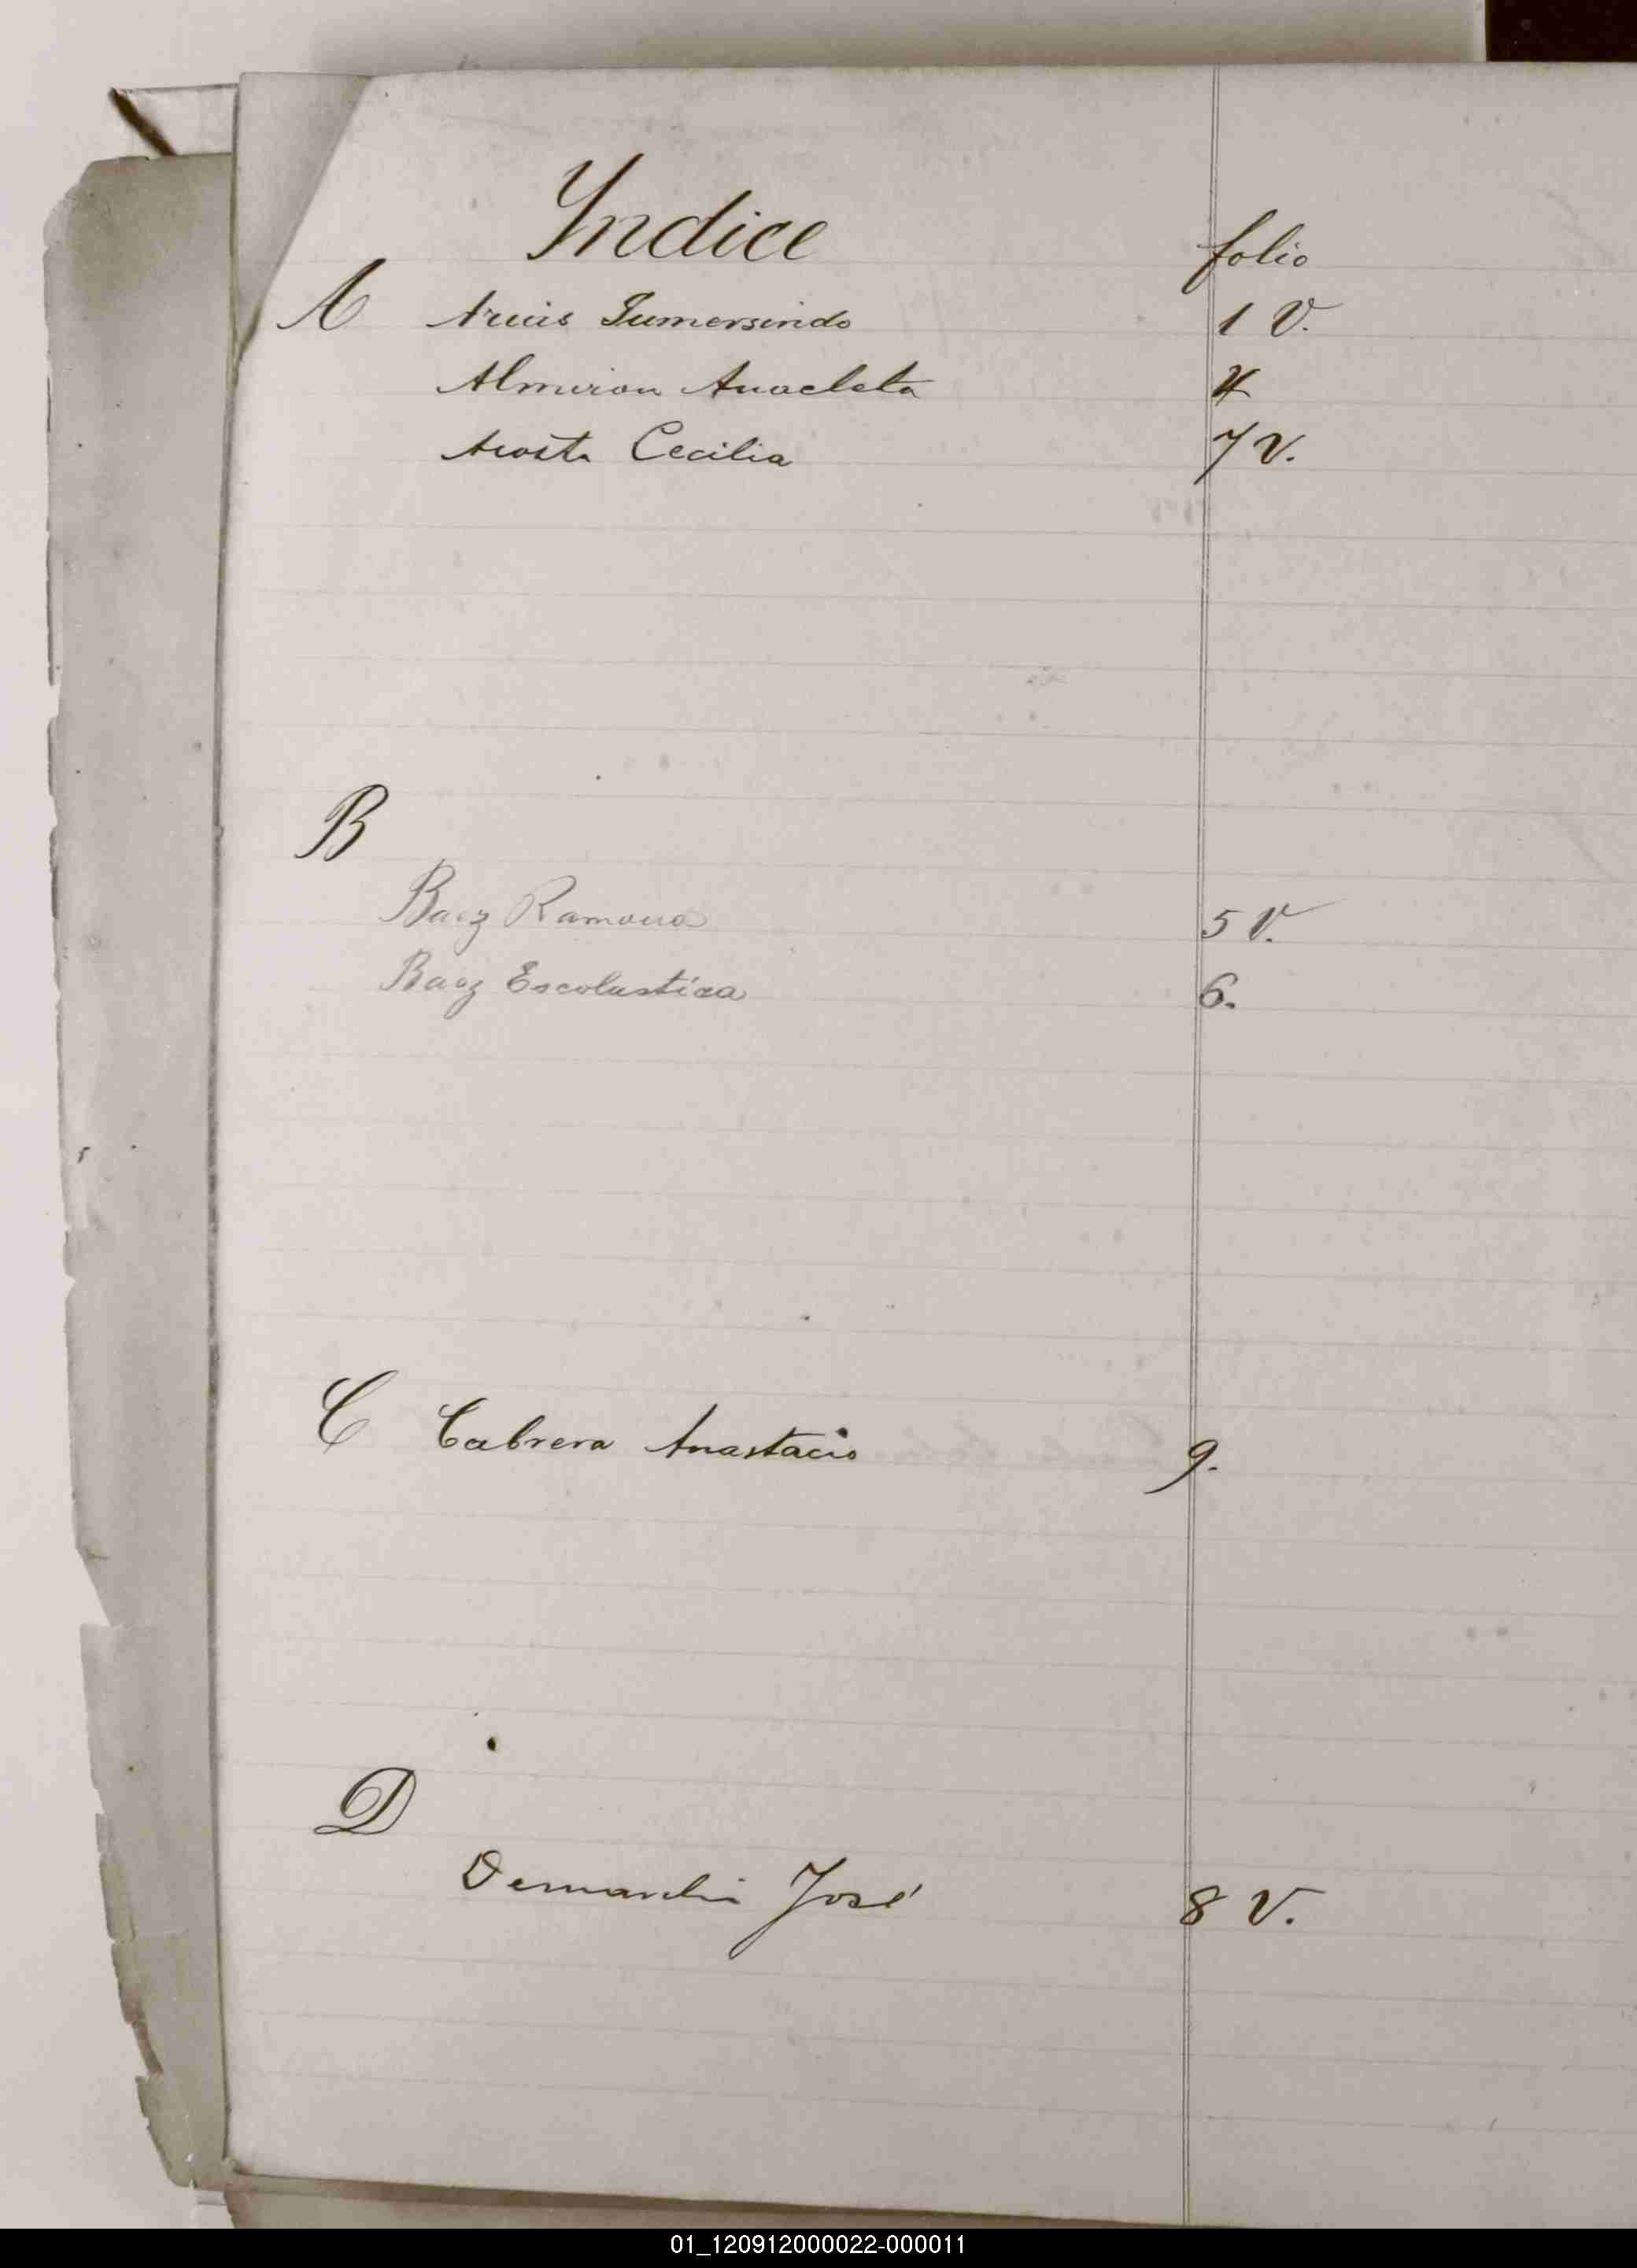 Indice folio
A Arias Gumersindo 1 V.
Almiron Anacleta 4
Acosta Cecilia 7 V.
B
Baez Ramona 5 V.
Baez Escolastica 6.
C Cabrera Anastacio 9.
D
José 8 V.
01_120912000022-000011